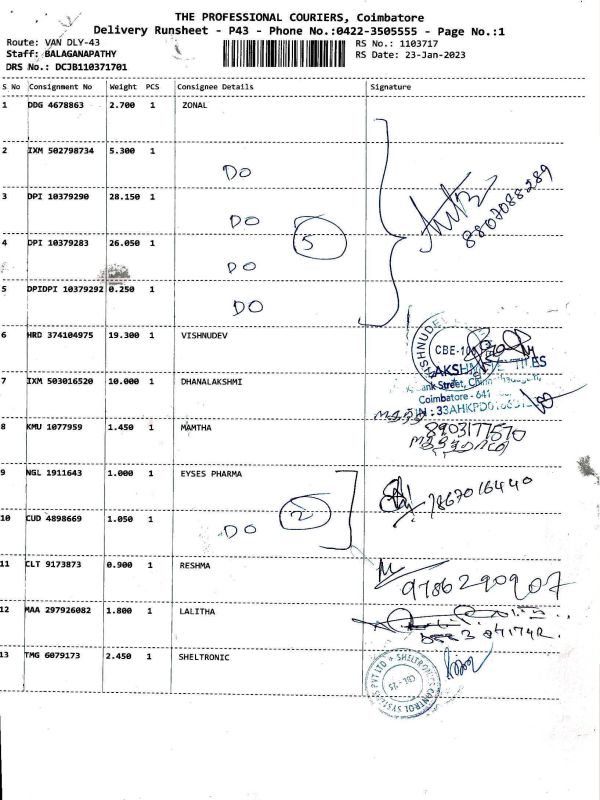 THE PROFESSIONAL COURIERS, Coimbatore
Delivery Runsheet - P43 - Phone No.:0422-3505555 - Page No.:1
Route: VAN DLY-43 RS No.: 1103717
Staff: BALAGANAPATHY RS Date: 23-Jan-2023
DRS No.: DCJB110371701
S No Consignment No Weight PCS Consignee Details Signature
1 DDG 4678863 2.700 1 ZONAL
2 IXM 502798734 5.300 1 DO
3 DPI 10379290 28.150 1 DO
8807088289
4 DPI 10379283 26.050 1 DO 5
5 DPIDPI 10379292 0.250 1 DO
6 HRD 374104975 19.300 1 VISHNUDEV
CBE-
7 IXM 503016520 10.000 1 DHANALAKSHMI
Coimbatore - 641
8 KMU 1077959 1.450 1 MAMTHA
8903177570
9 NGL 1911643 1.000 1 EYSES PHARMA
7867016440
10 CUD 4898669 1.050 1 DO 2
11 CLT 9173873 0.900 1 RESHMA
9786290907
12 MAA 297926082 1.800 1 LALITHA
13 TMG 6079173 2.450 1 SHELTRONIC
SHELTRONICS CONTROL SYSTEMS PVT LTD
CBE-25